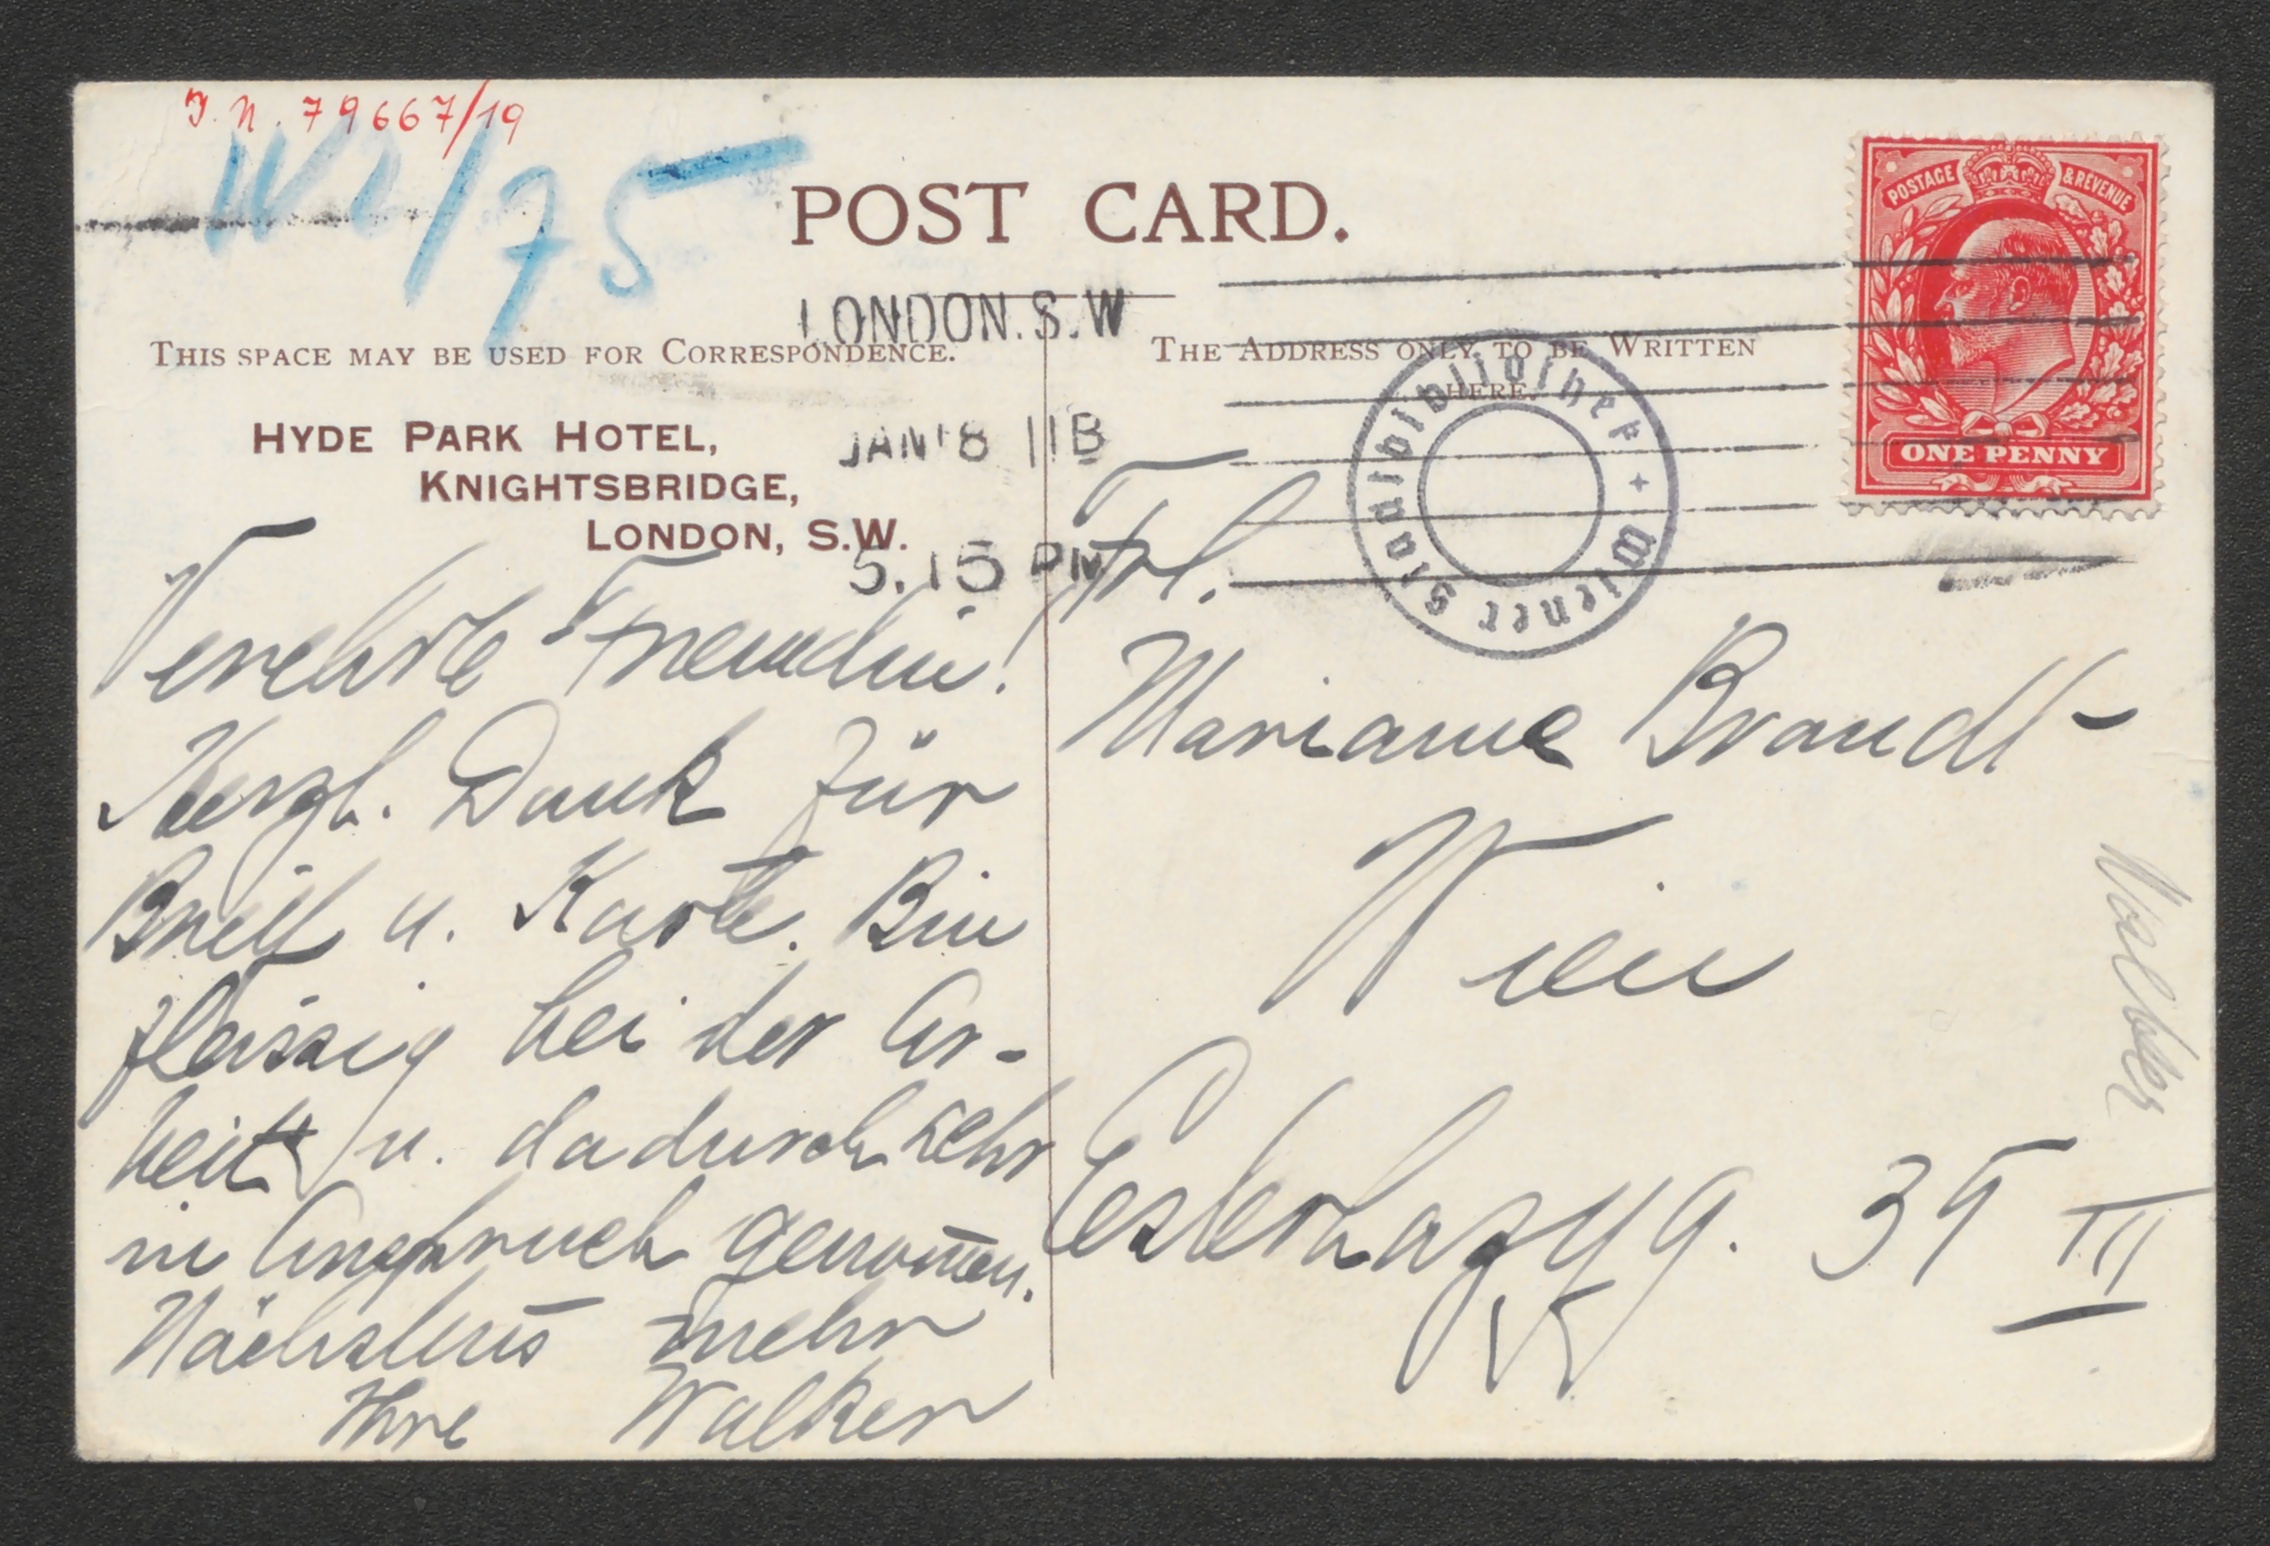 J.N. 79667/19
POST CARD.
LONDON.S.W
JAN 18 11B
5.15 PM
THIS SPACE MAY BE USED FOR CORRESPONDENCE.
THE ADDRESS ONLY TO BE WRITTEN
HERE.
POSTAGE & REVENUE
ONE PENNY
Wiener Stadtbibliothek +
HYDE PARK HOTEL,
KNIGHTSBRIDGE,
LONDON, S.W.
Verehrte Freundin!
Herzl. Dank für
Brief u. Karte. Bin
fleissig bei der Ar-
beit u. dadurch sehr
in Anspruch genom̅en.
Nächstens mehr
Ihre Walker
Frl.
Marianne Brandt
Wien
Esterhazyg. 35 III